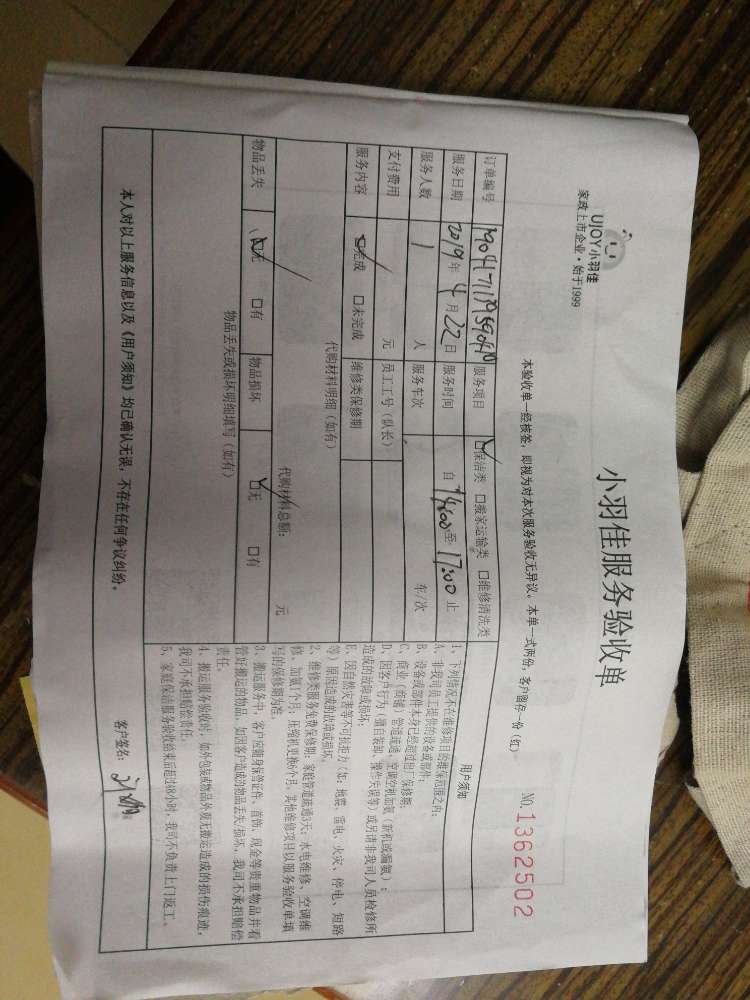 UJOY小羽佳
家政上市企业·始于1999
小羽佳服务验收单
本验收单一经核签，即视为对本次服务验收无异议。本单一式两份，客户留存一份（红） NO.1362502
订单编号 服务项目 ☑保洁类 □搬家运输类 □维修清洗类
服务日期 2019年4月22日 服务时间 自14:00至17:00止
服务人数 1 人 服务车次 车/次
支付费用 元 员工工号（队长）
服务内容 ☑完成 □未完成 维修类保修期
代购材料明细（如有）
代购材料总额： 元
物品丢失 ☑无 □有 物品损坏 ☑无 □有
物品丢失或损坏明细填写（如有）
用户须知
1、下列情况不在维修项目的维保范围之内：
A、非我司员工提供的设备或部件；
B、设备或部件本身已经超过出厂保修期；
C、商业（商铺）管道疏通、空调空机加氨（新机或漏氨）；
D、因客户行为（擅自装卸、操作失误等）或另请非我司人员检修所
造成的故障或损坏；
E、因自然灾害等不可抗拒力（如：地震、雷电、火灾、停电、短路
等）原因造成的故障或损坏。
2、维修类服务免费保修期：家庭管道疏通3天；水电维修、空调维
修、加氨1个月，压缩机更换6个月，其他维修项目以服务验收单填
写的保修期为准。
3、搬运服务中，客户应随身保管证件、首饰、现金等贵重物品并看
管好搬运的物品，如因客户造成的物品丢失/损坏，我司不承担赔偿
责任。
4、搬运服务验收时，如外包装或物品外观无搬运造成的损伤痕迹，
我司不承担赔偿责任。
5、家庭保洁服务验收结束后超过48小时，我司不负责上门返工。
本人对以上服务信息以及《用户须知》均已确认无误，不存在任何争议纠纷。 客户签名：